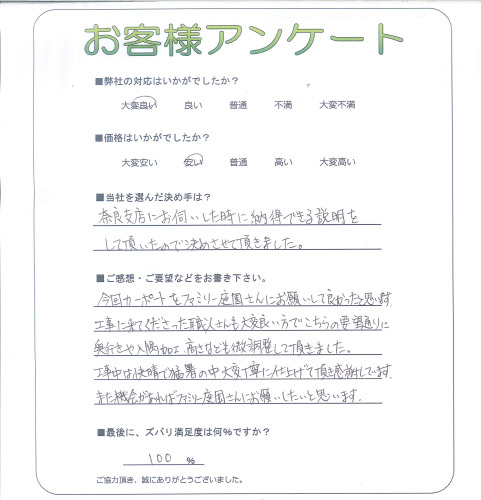 お客様アンケート
■弊社の対応はいかがでしたか？
大変良い 良い 普通 不満 大変不満
■価格はいかがでしたか？
大変安い 安い 普通 高い 大変高い
■当社を選んだ決め手は？
奈良支店にお伺いした時に納得できる説明を
して頂いたので決めさせて頂きました。
■ご感想・ご要望などをお書き下さい。
今回カーポートをファミリー庭園さんにお願いして良かったと思います。
工事に来てくださった職人さんも大変良い方でこちらの要望通りに
奥行きや入隅加工、高さなども微調整して頂きました。
工事中は快晴で猛暑の中大変丁寧に仕上げて頂き感謝しています。
また機会があればファミリー庭園さんにお願いしたいと思います。
■最後に、ズバリ満足度は何%ですか？
100 %
ご協力頂き、誠にありがとうございました。